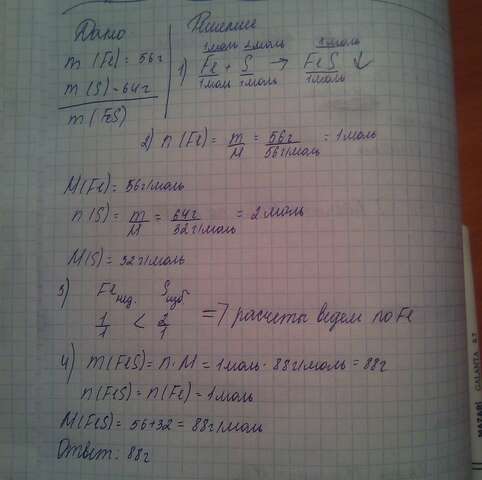 Дано
Решение
m (Fe) = 56г
m (S) = 64г
m (FeS)
1моль 2моль
1) Fe + S → FeS ↓
1моль 1моль 1моль
2) n (Fe) = m/M = 56г/56г/моль = 1моль
M(Fe) = 56г/моль
n(S) = m/M = 64г/32г/моль = 2моль
M(S) = 32г/моль
3) Fe нед. S изб
1/1 < 2/1 => расчеты ведем по Fe
4) m(FeS) = n · M = 1моль · 88г/моль = 88г
n(FeS) = n(Fe) = 1моль
M(FeS) = 56+32 = 88г/моль
Ответ: 88г
GALANTA